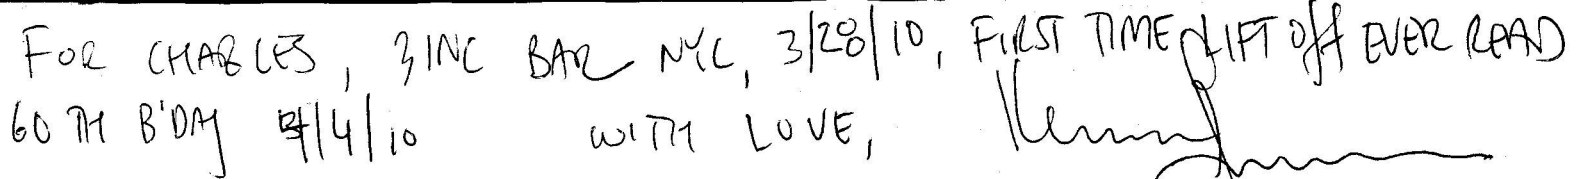 FOR CHARLES, ZINC BAR NYC, 3/28/10, FIRST TIME LIFT OFF EVER READ
60TH B'DAY 4/4/10 WITH LOVE, Kenny